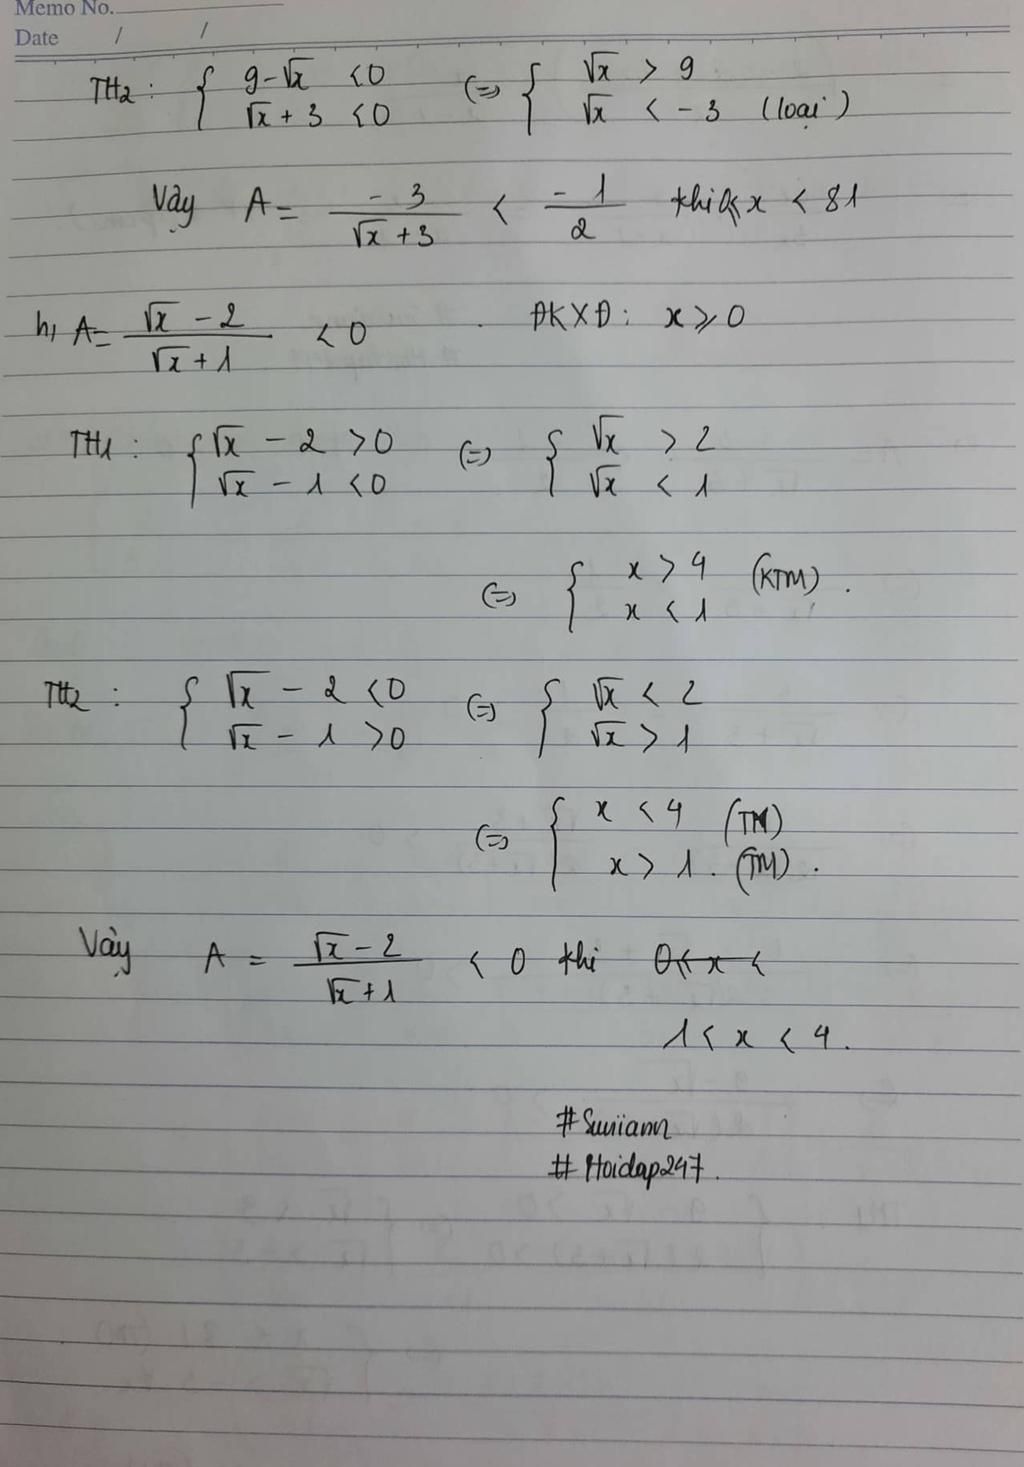 Memo No.
Date / /
TH2 : { 9 - √x < 0 (=) { √x > 9
√x + 3 < 0 √x < - 3 (loại)
Vậy A = - 3 / √x + 3 < - 1 / 2 khi 0 ≤ x < 81
h, A = √x - 2 / √x + 1 < 0 . ĐKXĐ : x ≥ 0
TH1 : { √x - 2 > 0 (=) { √x > 2
√x - 1 < 0 √x < 1
(=) { x > 4 (KTM) .
x < 1
TH2 : { √x - 2 < 0 (=) { √x < 2
√x - 1 > 0 √x > 1
(=) { x < 4 (TM)
x > 1 . (TM) .
Vậy A = √x - 2 / √x + 1 < 0 khi 0 ≤ x <
1 < x < 4 .
#Suriann
#Hoidap247 .